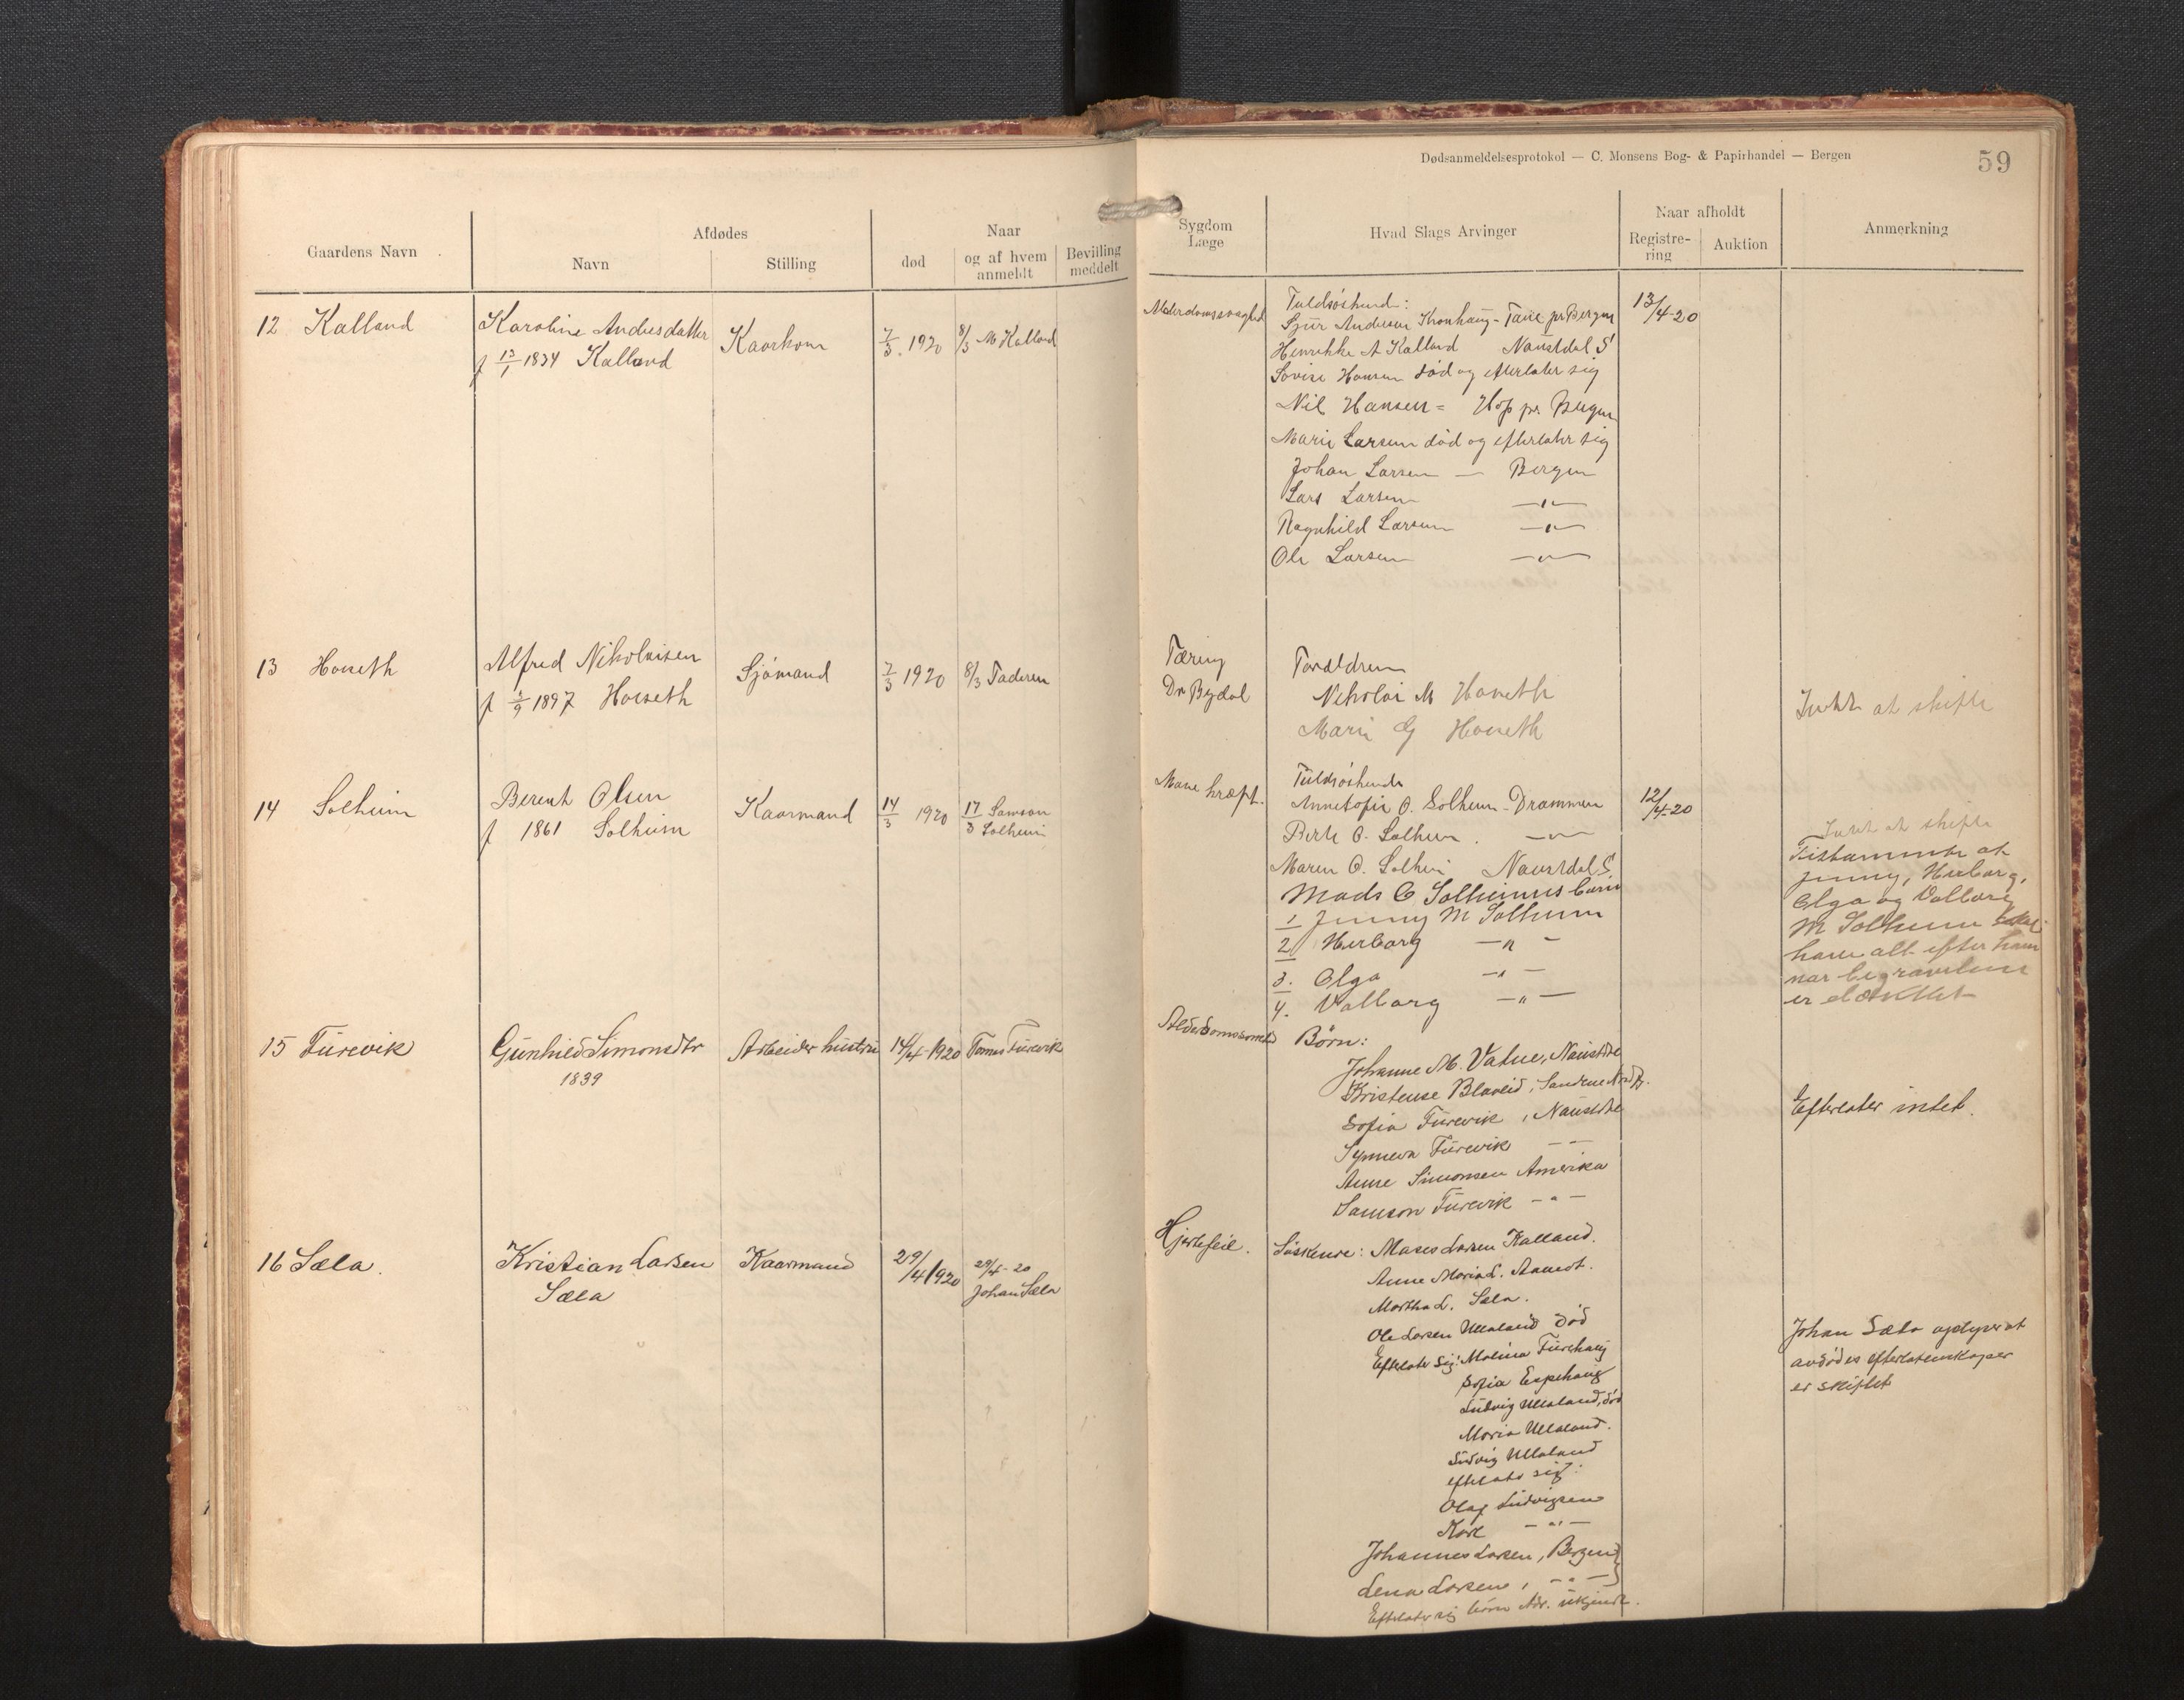 Dødsanmeldelsesprotokol — C. Monsens Bog- & Papirhandel — Bergen
59
Gaardens Navn
Afdødes
Navn
Stilling
Naar
død
og af hvem
anmeldt
Bevilling
meddelt
Sygdom
Læge
Hvad Slags Arvinger
Naar afholdt
Registre-
ring
Auktion
Anmerkning
12 Kalland
Karoline Andersdatter
f 13/1 1834 Kalland
Kaarkone
7/3 1920
8/3 M Kalland
Alderdomssvaghed
Fuldsøskend:
Sjur Andersen Kronhaug - Bergen
Henrikke A Kalland Naustdal S
Lovise Hansen død og efterlater sig
Nil Hansen = Hop pr. Bergen
Marie Larsen død og efterlater sig
Johan Larsen — Bergen
Lars Larsen —"—
Ragnhild Larsen —"—
Ole Larsen —"—
13/4-20
13 Horseth
Alfred Nikolaisen
f 2/9 1897 Horseth
Sjømand
7/3 1920
8/3 Faderen
Tæring
Dr Bydal
Forældrene
Nikolai M Horseth
Marie G Horseth
Intet at skifte
14 Solheim
Berent Olsen
f 1861 Solheim
Kaarmand
14/3 1920
17/3 Samson
Solheim
Mave kræft.
Fuldsøskende
Annesofie O. Solheim - Drammen
Berte O. Solheim . —"—
Maren O. Solheim Naustdal S
Mads O Solheimsbørn
1 Jenny M Solheim
2 Herborg —"—
3. Olga —"—
4. Valborg —"—
12/4-20
Intet at skifte
Testamente at
Jenny, Herborg,
Olga og Valborg
M Solheim skal
have alt efter ham
nar begravelsen
er dækket
15 Furevik
Gunhild Simonsdtr
1839
Arbeider hustru
14/4-1920
Tomas Furevik
Børn:
Johanne M. Vatne, Naustdal
Kristense Blaalid, Sandene Nordfj.
Sofia Furevik, Naustdal
Synneva Furevik — —
Anne Simonsen Amerika
Samson Furevik —"—
Efterlater intet.
16 Sæla.
Kristian Larsen
Sæla
Kaarmand
29/4 1920
29/4-20
Johan Sæla
Hjertefeil.
Søskende: Moses Larsen Kalland.
Anne Maria L. Aamot.
Martha L. Sæla.
Ole Larsen Ullaland død
Efterlater sig: Malina Furehaug
Sofia Espehaug
Ludvig Ullaland, død
Maria Ullaland.
Ludvig Ullaland
efterlater sig:
Olaf Ludvigsen
Kåre —"—
Johannes Larsen, Bergen
Lena Larsen, —"—
Efterlater sig børn Adr. ukjendt.
Johan Sæla oplyser at
avdødes efterlatenskaper
er skiftet